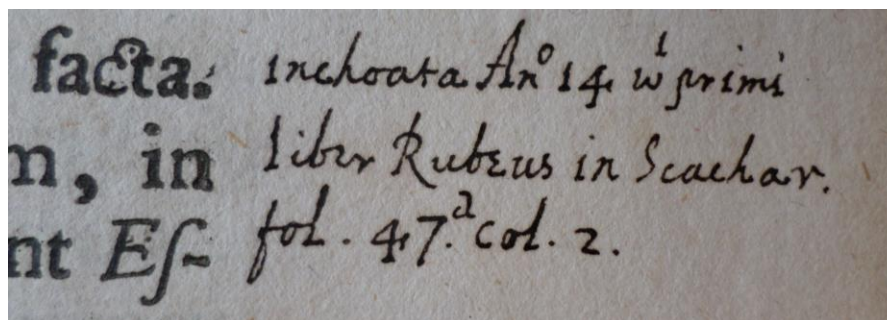 facta. inchoata Anº 14 wⁱ primi
m, in liber Rubeus in Scachar.
nt Eſ- fol. 47.ᵃ col. 2.